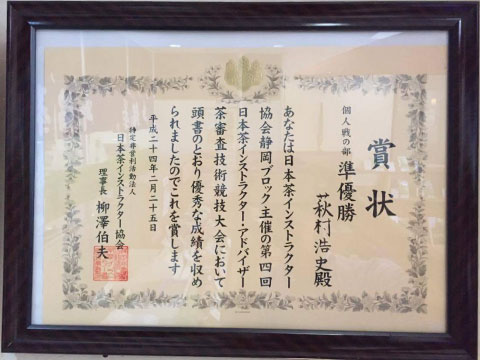 賞状
個人戦の部
準優勝
萩村浩史殿
あなたは日本茶インストラクター
協会静岡ブロック主催の第四回
日本茶インストラクター・アドバイザー
茶審査技術競技大会において
頭書のとおり優秀な成績を収め
られましたのでこれを賞します
平成二十四年二月二十五日
特定非営利活動法人
日本茶インストラクター協会
理事長 柳澤伯夫